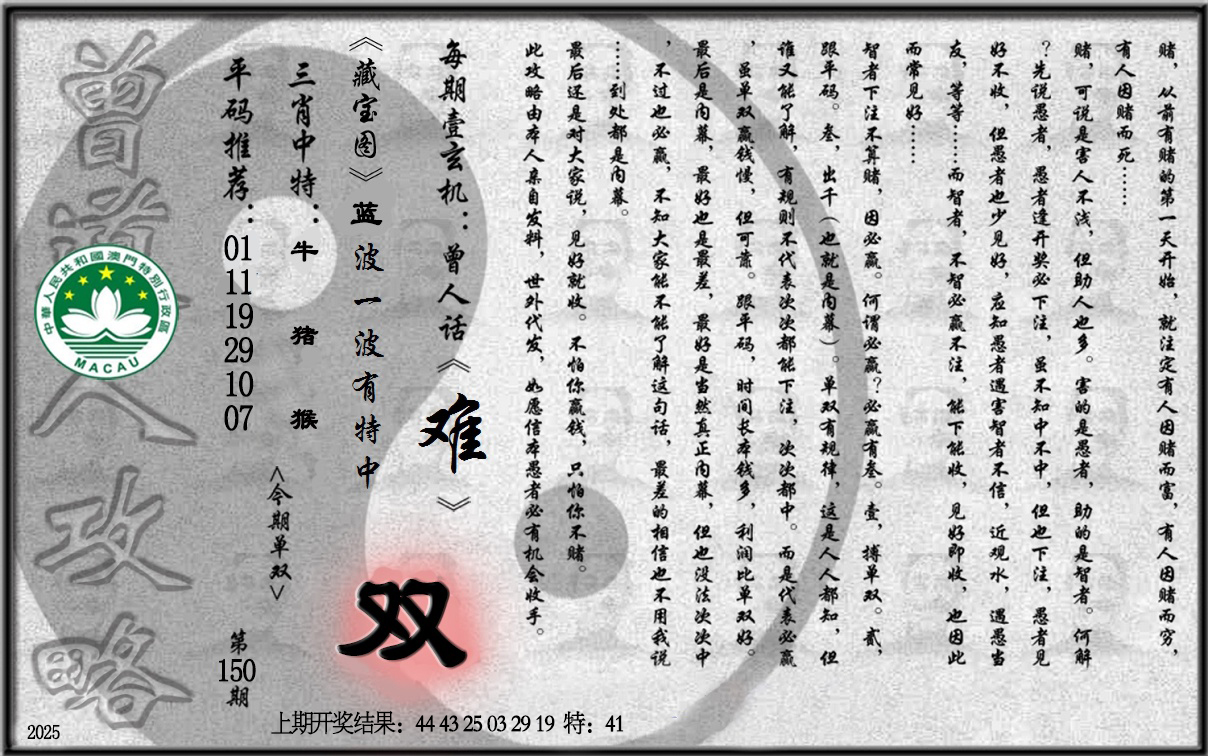 赌，从前有赌的第一天开始，就注定有人因赌而富，有人因赌而穷，
有人因赌而死……
赌，可说是害人不浅，但助人也多。害的是愚者，助的是智者。何解
？先说愚者，愚者逢开奖必下注，虽不知中不中，但也下注，愚者见
好不收，但愚者也少见好，应知愚者遇害智者不信，近观水，遇愚当
友，等等……而智者，不智必赢不注，能下能收，见好即收，也因此
而常见好……
智者下注不算赌，因必赢。何谓必赢？必赢有叁。壹，搏单双。贰，
跟平码。叁，出千（也就是内幕）。单双有规律，这是人人都知，但
谁又能了解，有规则不代表次次都能下注，次次都中。而是代表必赢
，虽单双赢钱慢，但可靠。跟平码，时间长本钱多，利润比单双好。
最后是内幕，最好也是最差，最好是当然真正内幕，但也没法次次中
，不过也必赢，不知大家能不能了解这句话，最差的相信也不用我说
……到处都是内幕。
最后还是对大家说，见好就收。不怕你赢钱，只怕你不赌。
此攻略由本人亲自发料，世外代发，如愿信本愚者必有机会收手。
每期壹玄机：曾人话《难》
《藏宝图》蓝波一波有特中
双
三肖中特：牛 猪 猴
<今期单双>
平码推荐：01 11 19 29 10 07
第150期
曾道人攻略
中華人民共和國澳門特別行政區
MACAU
上期开奖结果：44 43 25 03 29 19 特：41
2025